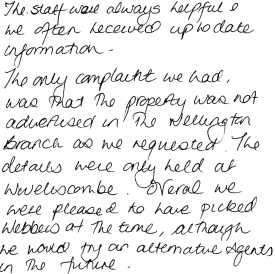 The staff were always helpful &
we often received up to date
information.
The only complaint we had,
was that the property was not
advertised in The Wellington
Branch as we requested. The
details were only held at
Wiveliscombe. Overal we
were pleased to have picked
Webbers at the time, although
we would try an alternative Agents
in the future.